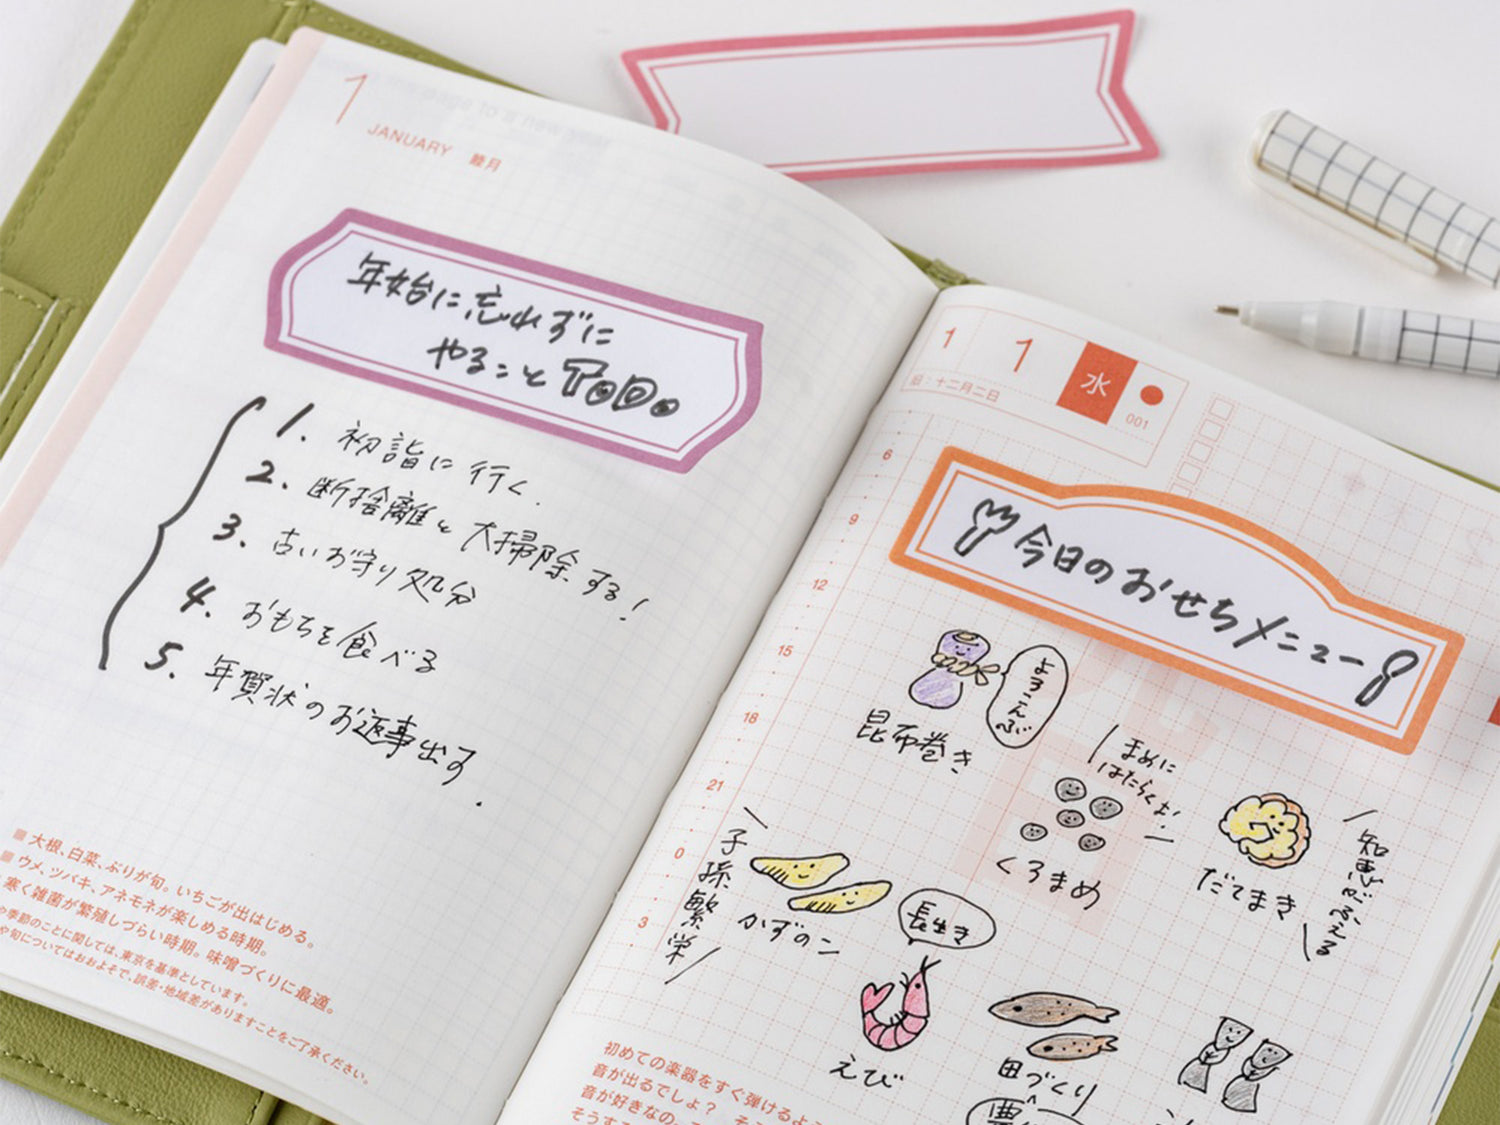 1
JANUARY 睦月
年始に忘れずに
やること TODO.
1. 初詣に行く.
2. 断捨離と大掃除する!
3. 古いお守り処分
4. おもちを食べる
5. 年賀状のお返事出す.
■大根、白菜、ぶりが旬。いちごが出はじめる。
■ウメ、ツバキ、アネモネが楽しめる時期。
寒く雑菌が繁殖しづらい時期。味噌づくりに最適。
季節のことに関しては、東京を基準としています。
旬についてはおおよそで、誤差・地域差がありますことをご了承ください。
1 1 水
旧:十二月二日
001
6
9
12
15
18
21
0
3
今日のおせちメニュー
よろこんぶ
昆布巻き
まめに
はたらくよ!
くろまめ
だてまき
知恵がふえる
子孫繁栄
かずのこ
長生き
えび
田づくり
豊
初めての楽器をすぐ弾けるよ
音が出るでしょ? そ
音が好きなの。
そうす